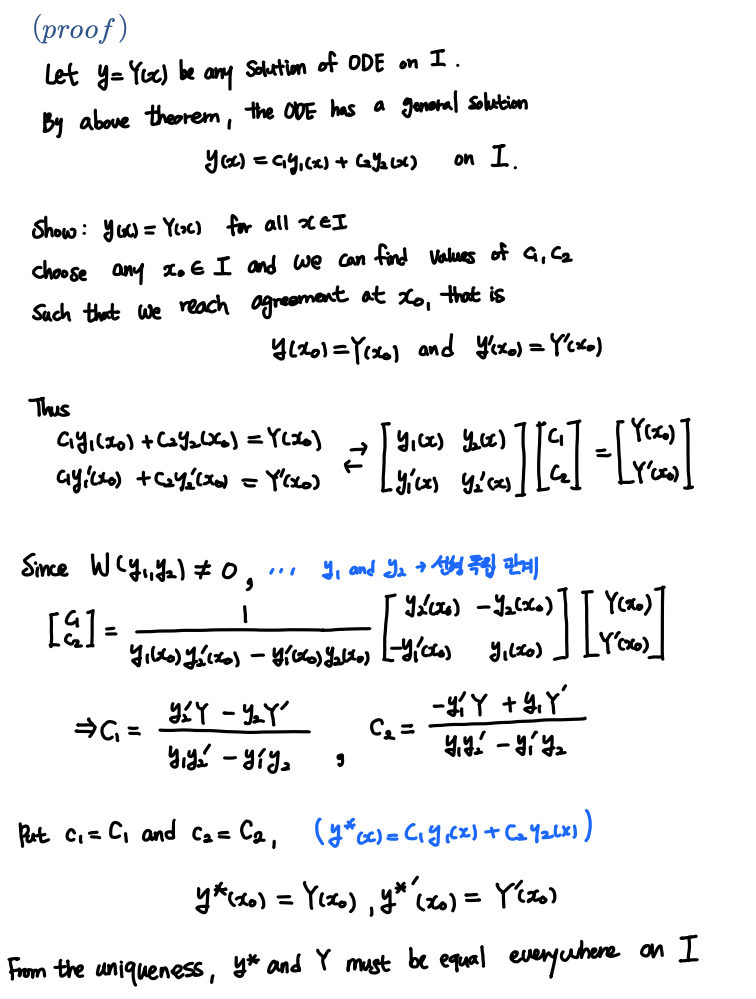 (proof)
Let y = Y(x) be any solution of ODE on I.
By above theorem, the ODE has a general solution
y(x) = c₁y₁(x) + c₂y₂(x) on I.
Show: y(x) = Y(x) for all x ∈ I
choose any x₀ ∈ I and we can find values of c₁, c₂
Such that we reach agreement at x₀, that is
y(x₀) = Y(x₀) and y'(x₀) = Y'(x₀)
Thus
c₁y₁(x₀) + c₂y₂(x₀) = Y(x₀) ⇄ [y₁(x) y₂(x); y₁'(x) y₂'(x)] [c₁; c₂] = [Y(x₀); Y'(x₀)]
c₁y₁'(x₀) + c₂y₂'(x₀) = Y'(x₀)
Since W(y₁,y₂) ≠ 0, ··· y₁ and y₂ → 선형 독립 관계
[c₁; c₂] = 1 / (y₁(x₀)y₂'(x₀) - y₁'(x₀)y₂(x₀)) [y₂'(x₀) -y₂(x₀); -y₁'(x₀) y₁(x₀)] [Y(x₀); Y'(x₀)]
⇒ C₁ = (y₂'Y - y₂Y') / (y₁y₂' - y₁'y₂), C₂ = (-y₁'Y + y₁Y') / (y₁y₂' - y₁'y₂)
Put c₁ = C₁ and c₂ = C₂, (y*(x) = C₁y₁(x) + C₂y₂(x))
y*(x₀) = Y(x₀), y*'(x₀) = Y'(x₀)
From the uniqueness, y* and Y must be equal everywhere on I